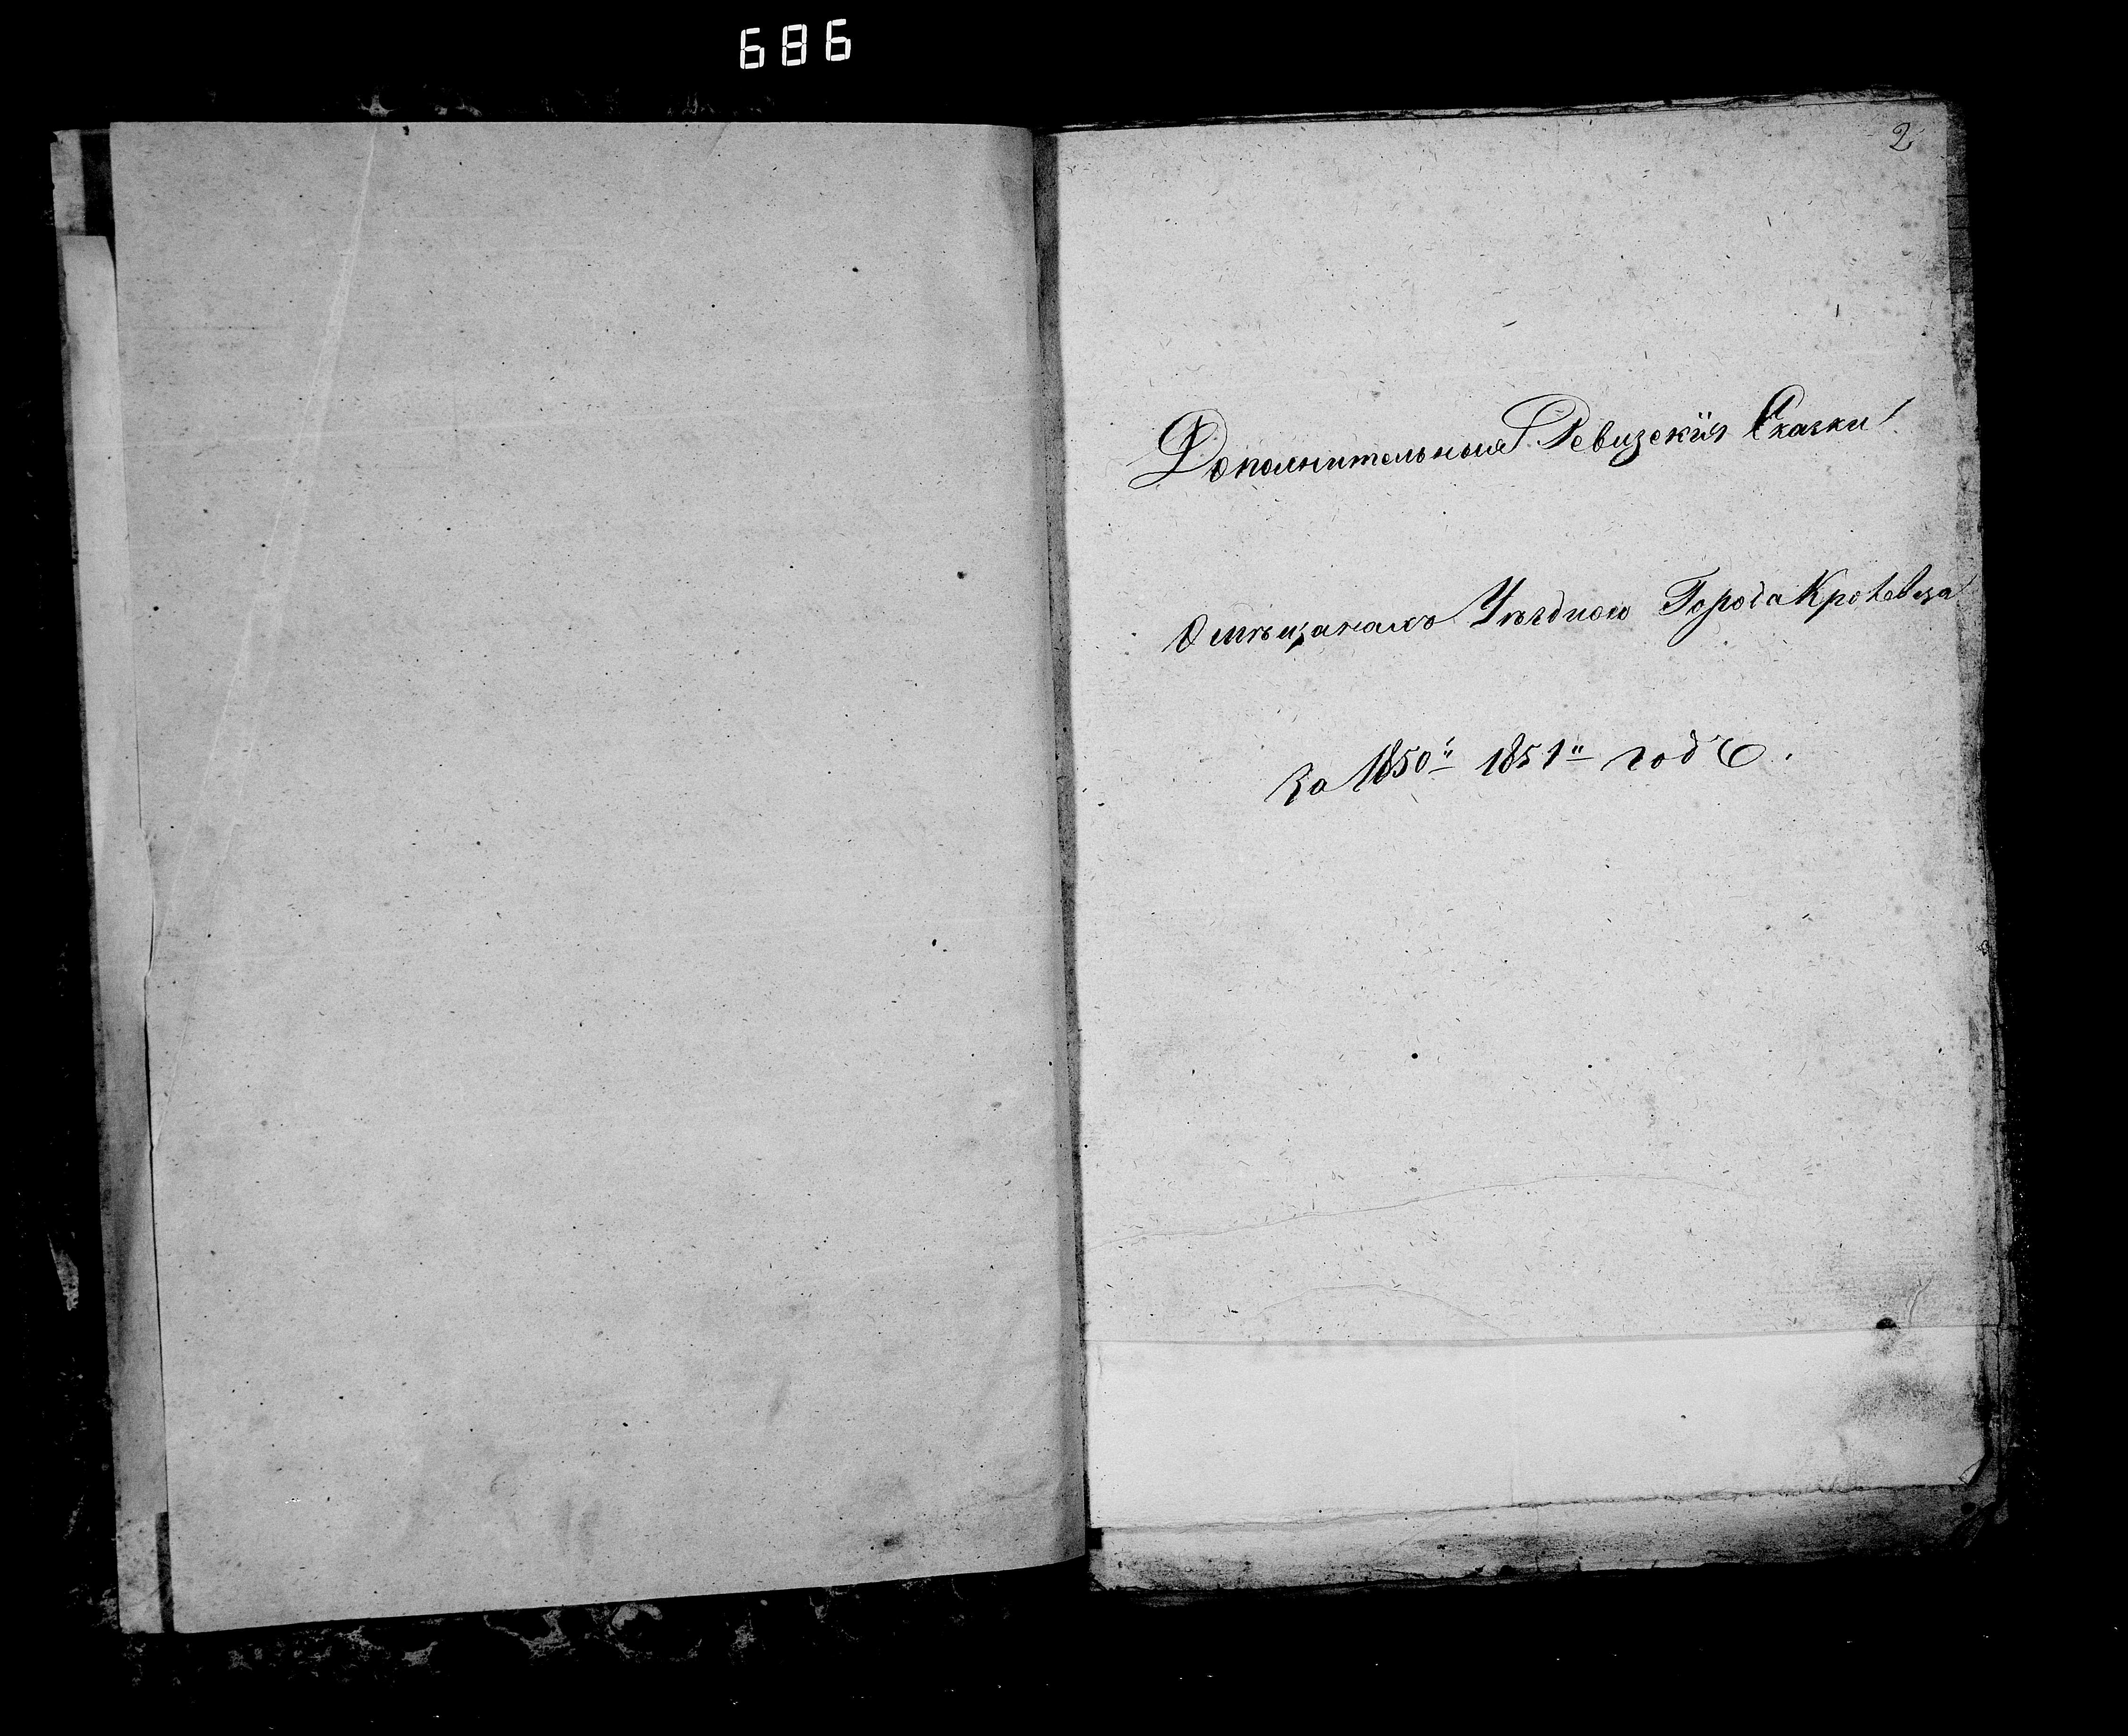 686
2
Дополнительныя Ревизскія Сказки
О мѣщанахъ Уѣзднаго Города Кролевца
За 1850" 1851" годъ.